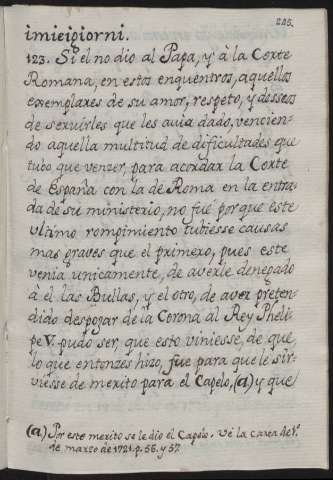 285.
imieigiorni.
123. Si el no dio al Papa, y à la Corte
Romana, en estos enquentros, aquellos
exemplares de su amor, respeto, y desseos
de servirles que les avia dado, vencien-
do aquella multitud de dificultades que
tubo que venzer, para acordar la Corte
de España con la de Roma en la entra-
da de su ministerio, no fué porque este
ultimo rompimiento tubiesse causas
mas graves que el primero, pues este
venia unicamente, de averle denegado
â el las Bullas, y el otro, de aver preten-
dido despojar de la Corona al Rey Pheli-
pe V. pudo ser, que esto viniesse, de que,
lo que entonzes hizo, fue para que le sir-
viesse de merito para el Capelo, (a) y que
(a) Por este merito se le dio el Capelo. Ve la Carta de 1.º
de marzo de 1721. p. 56. y 57.